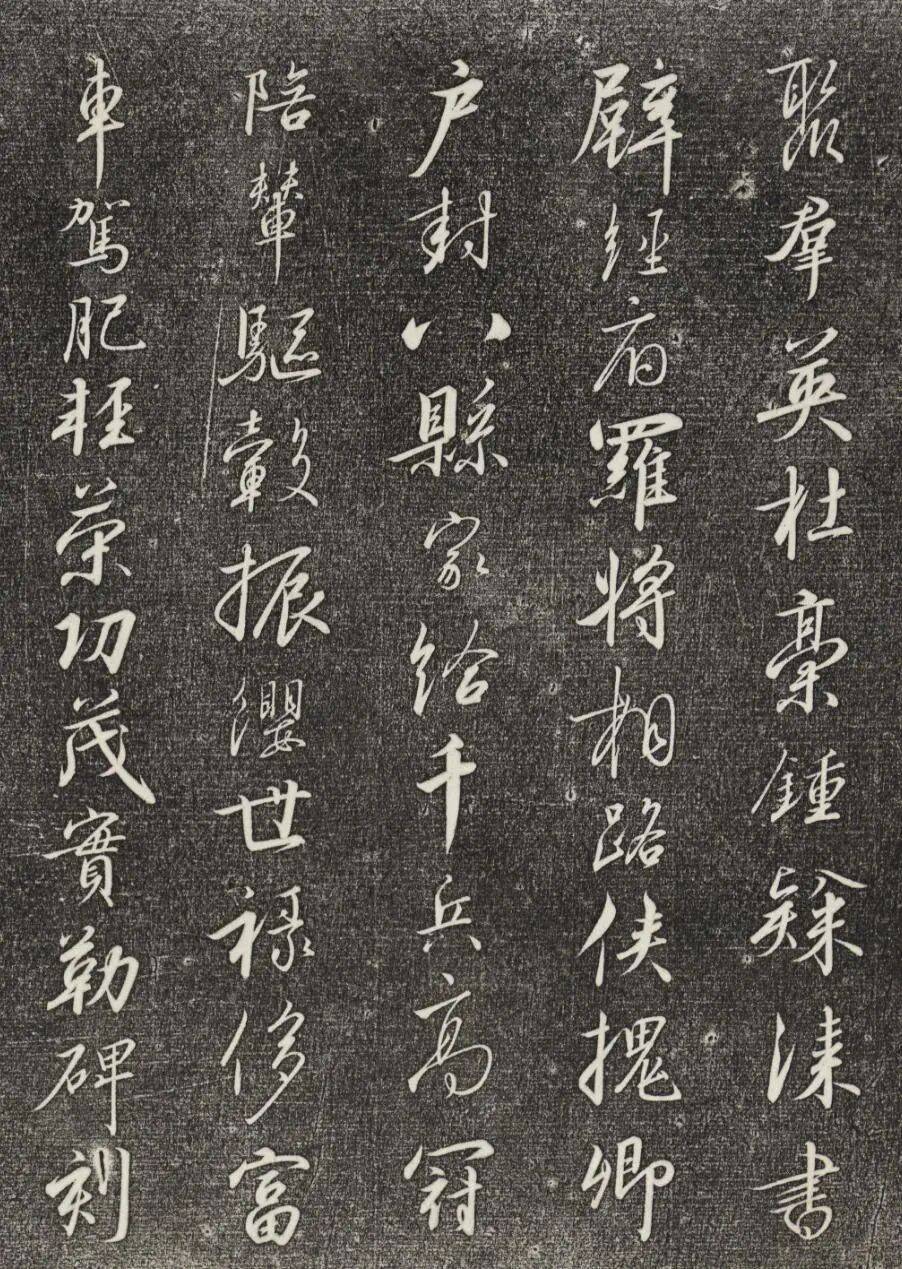 聚群英杜稾鍾隸漆書
壁經府羅將相路俠槐卿
户封八縣家給千兵高冠
陪輦驅轂振纓世祿侈富
車駕肥輕策功茂實勒碑刻